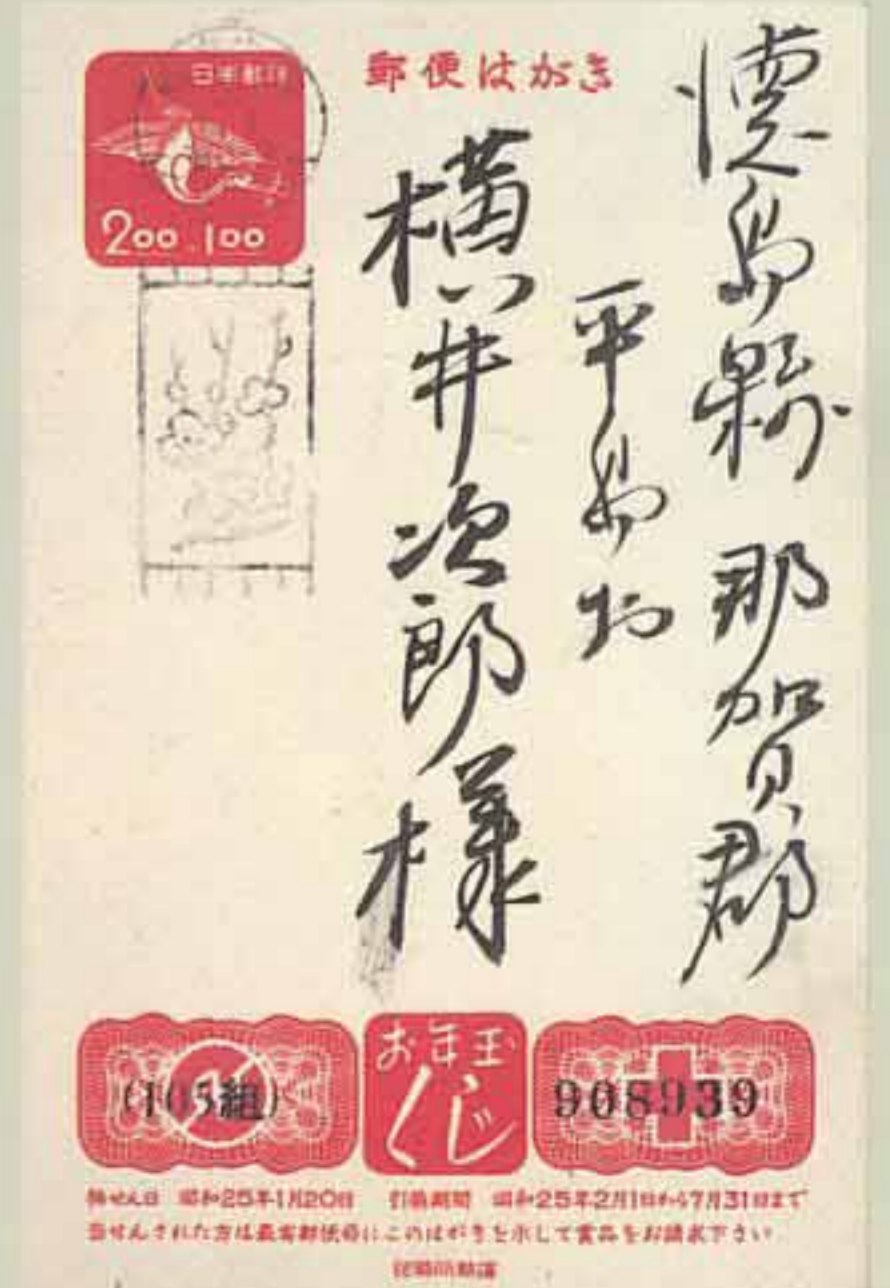 郵便はがき
日本郵便
2.00+1.00
徳島縣那賀郡
平島村
横井次郎様
お年玉
くじ
(105組)
908939
抽せん日 昭和25年1月20日 引換期間 昭和25年2月1日から7月31日まで
当せんされた方は最寄郵便局にこのはがきを示して賞品をお請求下さい